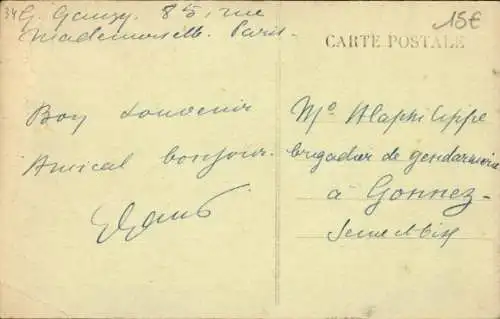 34
G. Gauzy. 85, rue
Mademoiselle. Paris.
15€
CARTE POSTALE
Bon souvenir
Amical bonjour.
Mr Alaphilippe
brigadier de gendarmerie
à Gonnez